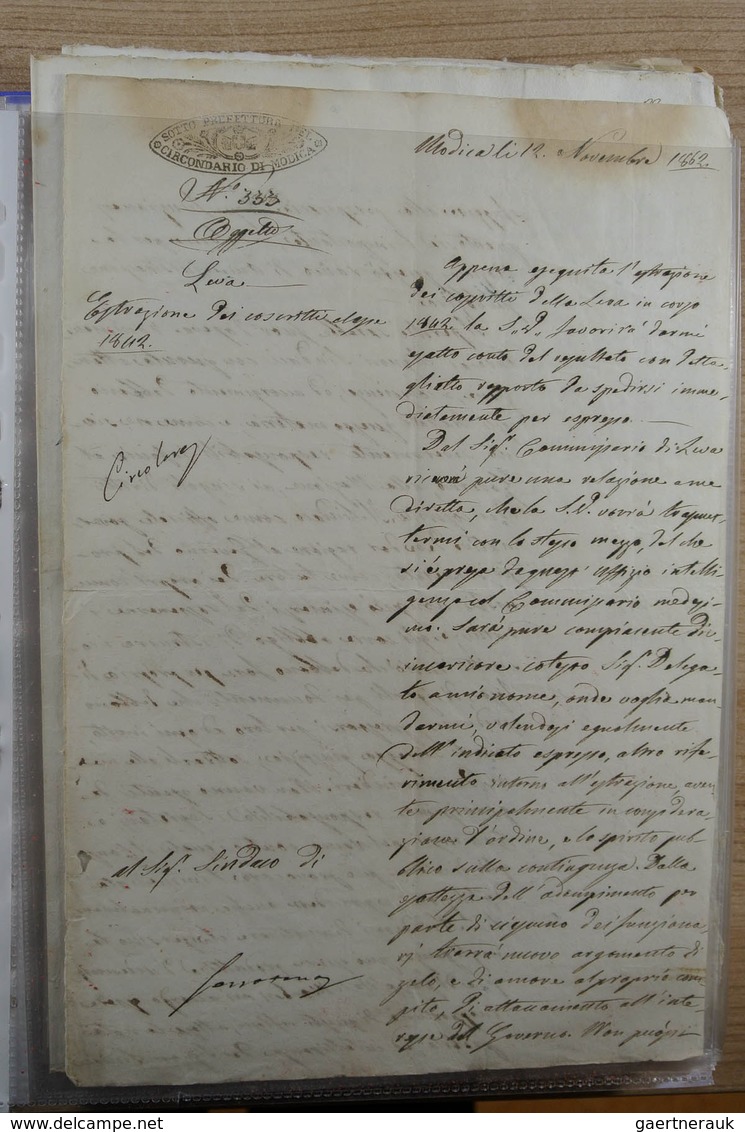 SOTTO PREFETTURA DEL
CIRCONDARIO DI MODICA
Modica li 12. Novembre 1862.
N.° 333
Oggetto
Leva
Estrazione dei coscritti classe
1842.
Circolare
al Sig.r Sindaco di
Appena eseguita l'estrazione
dei coscritti della Leva in corso
1842 la S. V. favorirà darmi
esatto conto del resultato con detta-
gliatto rapporto da spedirsi imme-
diatamente per espresso.
Dal Sig.r Commissario di Leva
pure una relazione a me
diretta, che la S. V. vorrà trasmet-
termi con lo stesso mezzo, del che
si è presa da quest' Uffizio intelli-
genza col Commissario medesi-
mo. Sarà pure compiacente d'in-
incaricare cotesto Sig.r Delega-
to a mio nome, onde voglia man-
darmi, valendosi egualmente
dell'indicato espresso, altro rife-
rimento intorno all'estrazione, aven-
te principalmente in considera-
zione l'ordine, e lo spirito pub-
blico sulla contingenza. Dalla
esattezza dell'adempimento per
parte di ciascuno dei funziona-
rj trarrà nuovo argomento di
zelo, e di amore al proprio com-
pito, di attaccamento all'inte-
resse del Governo. Non può poi
gaertnerauk @ delcampe.net